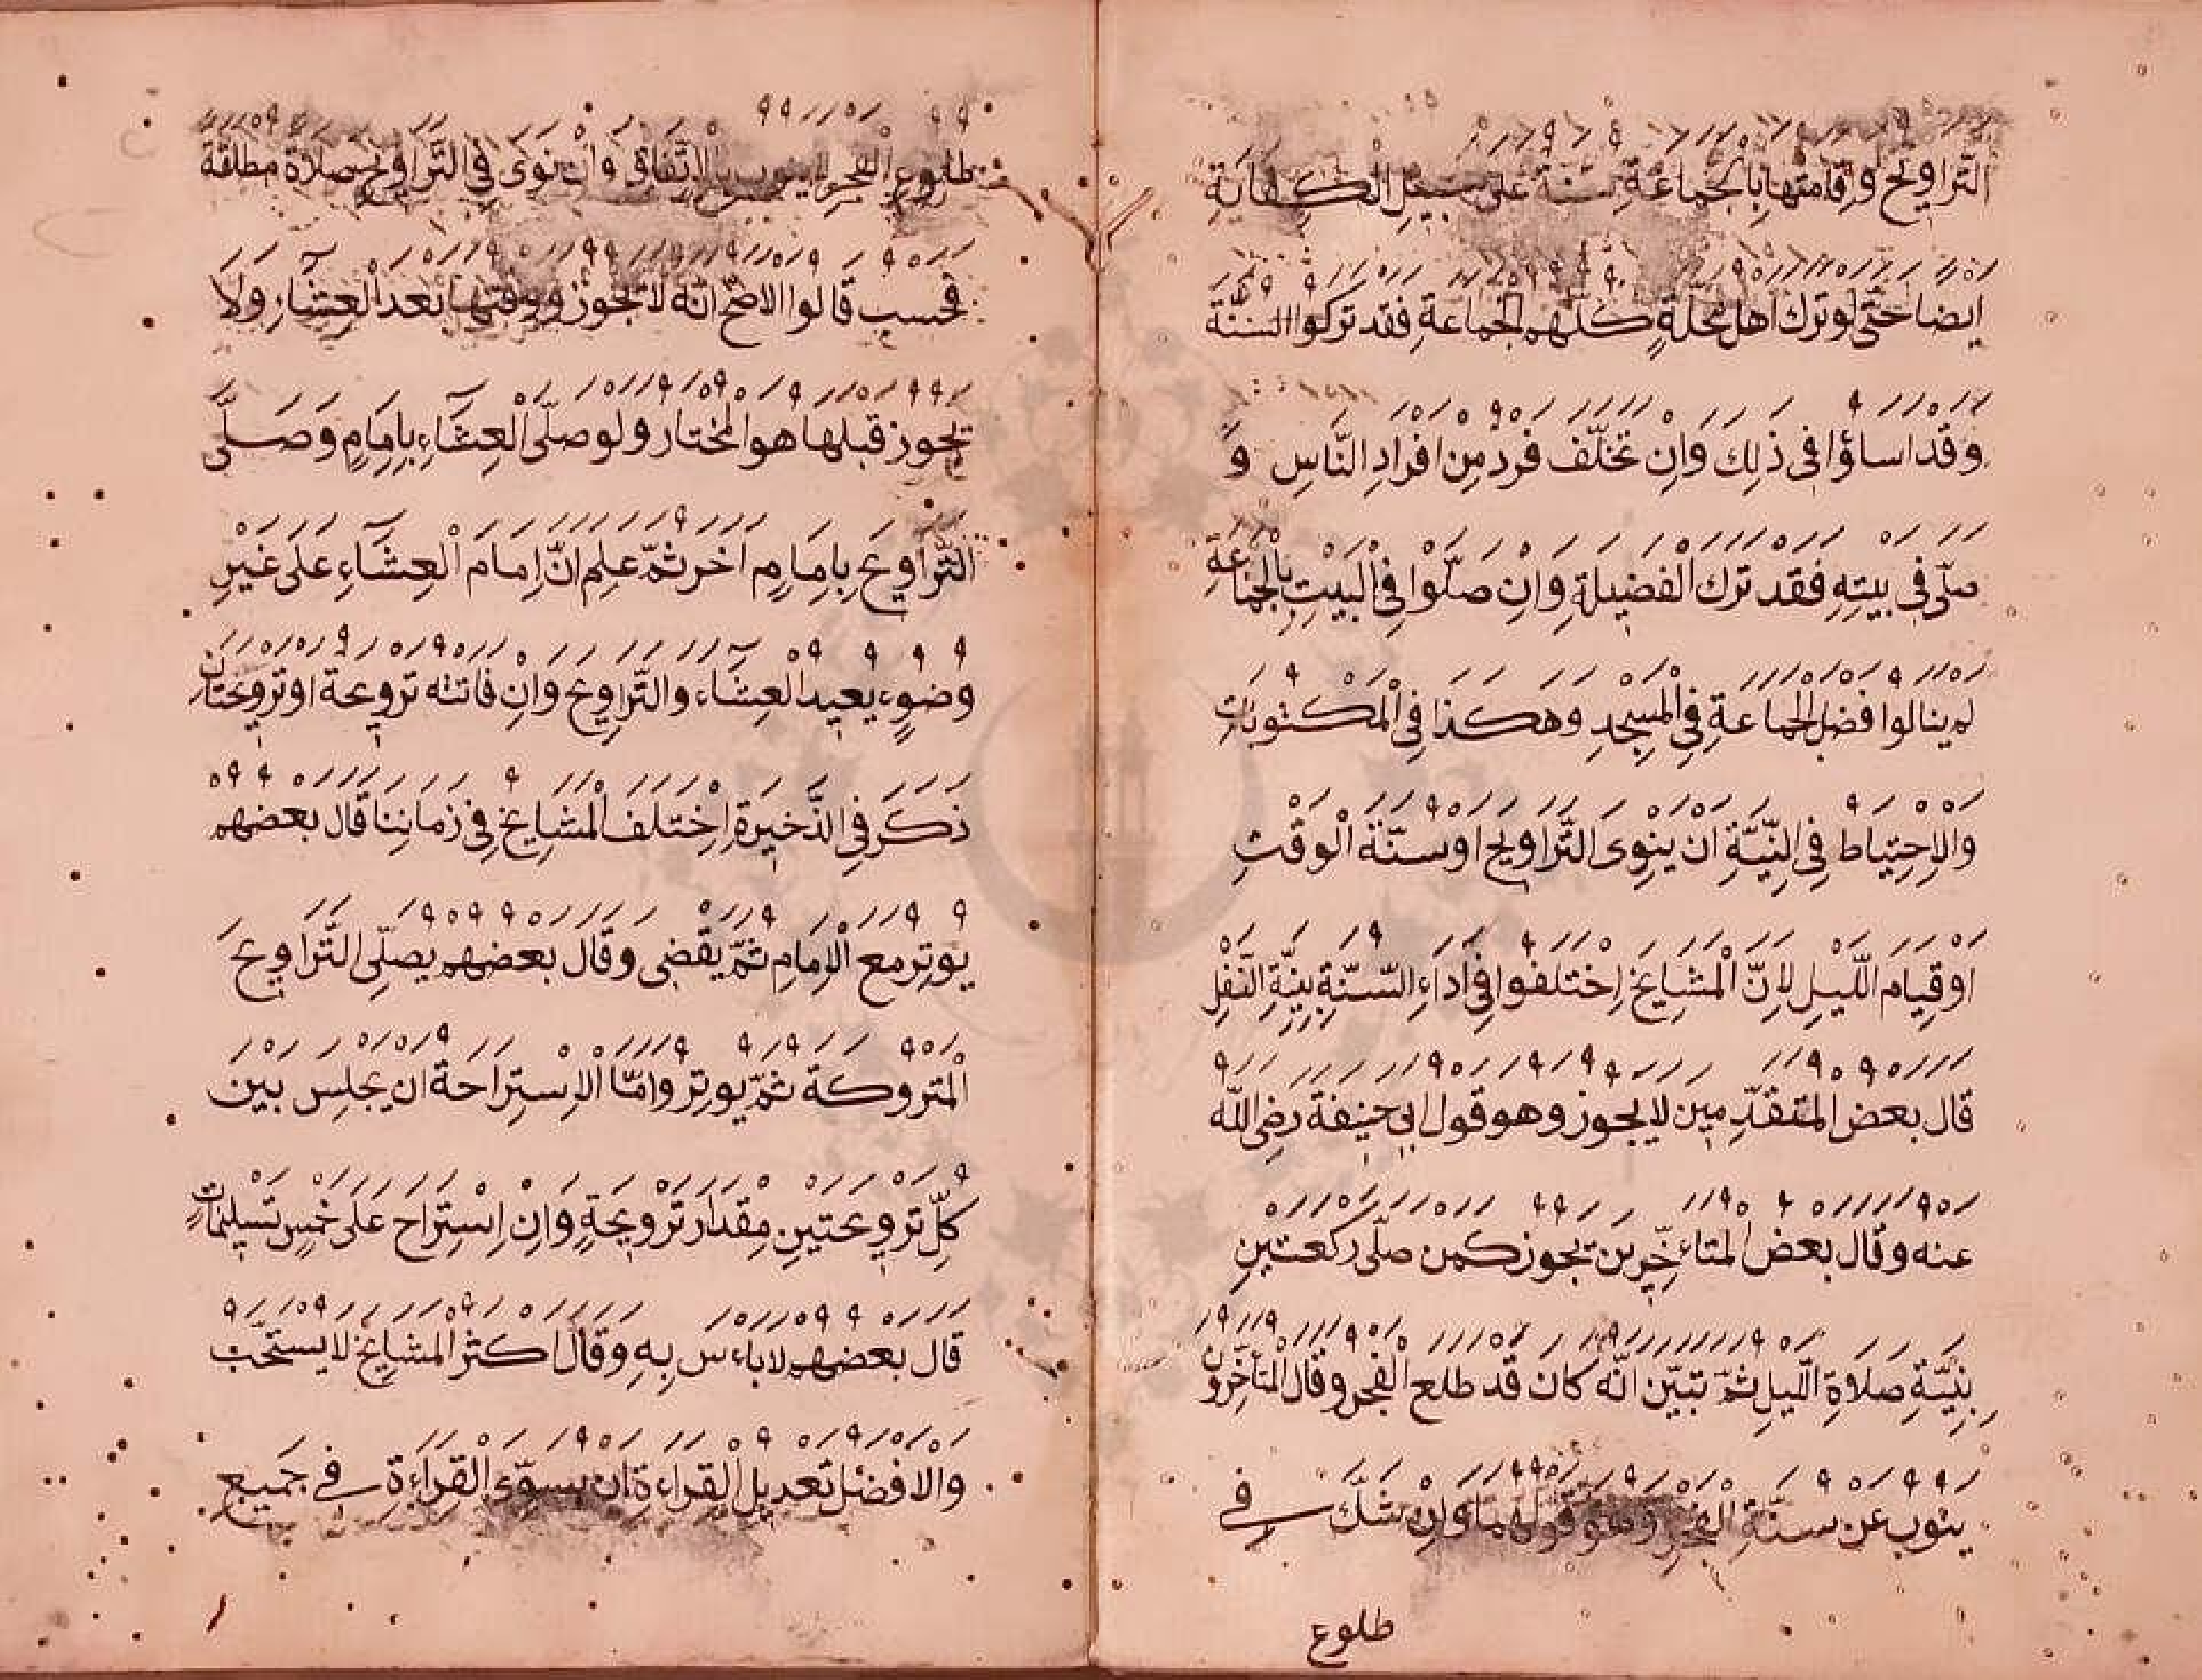 التراويح وإقامتها بالجماعة سنة على سبيل الكفاية
ايضا حتى لو ترك اهل محلة كلهم الجماعة فقد تركوا السنة
وقد اساؤا فى ذلك وان تخلف فرد من افراد الناس و
صلى فى بيته فقد ترك الفضيلة وان صلوا فى البيت بالجماعة
لم ينالوا فضل الجماعة فى المسجد وهكذا فى المكتوبات
والاحتياط فى النية ان ينوى التراويح او سنة الوقت
او قيام الليل لان المشايخ اختلفوا فى اداء السنة بنية النفل
قال بعض المتقدمين لا يجوز وهو قول ابى حنيفة رضى الله
عنه وقال بعض المتاءخرين يجوز كمن صلى ركعتين
بنية صلاة الليل ثم تبين انه كان قد طلع الفجر وقال المتأخرون
ينوب عن سنة الفجر وهو قولهما وان شك فى
طلوع
طلوع الفجر لا ينوب بالاتفاق وان نوى فى التراويح صلاة مطلقة
فحسب قالوا الاصح انه لا تجوز ووقتها بعد العشاء ولا
تجوز قبلها هو المختار ولو صلى العشاء بامام وصلى
التراويح بامام اخر ثم علم ان امام العشاء على غير
وضوء يعيد العشاء والتراويح وان فاتته ترويحة او ترويحتان
ذكر فى الذخيرة اختلف المشايخ فى زماننا قال بعضهم
يوتر مع الامام ثم يقضى وقال بعضهم يصلى التراويح
المتروكة ثم يوتر واما الاستراحة ان يجلس بين
كل ترويحتين مقدار ترويحة وان استراح على خمس تسليمات
قال بعضهم لا باءس به وقال اكثر المشايخ لا يستحب
والافضل تعديل القراءة ان يسوى القراءة فى جميع